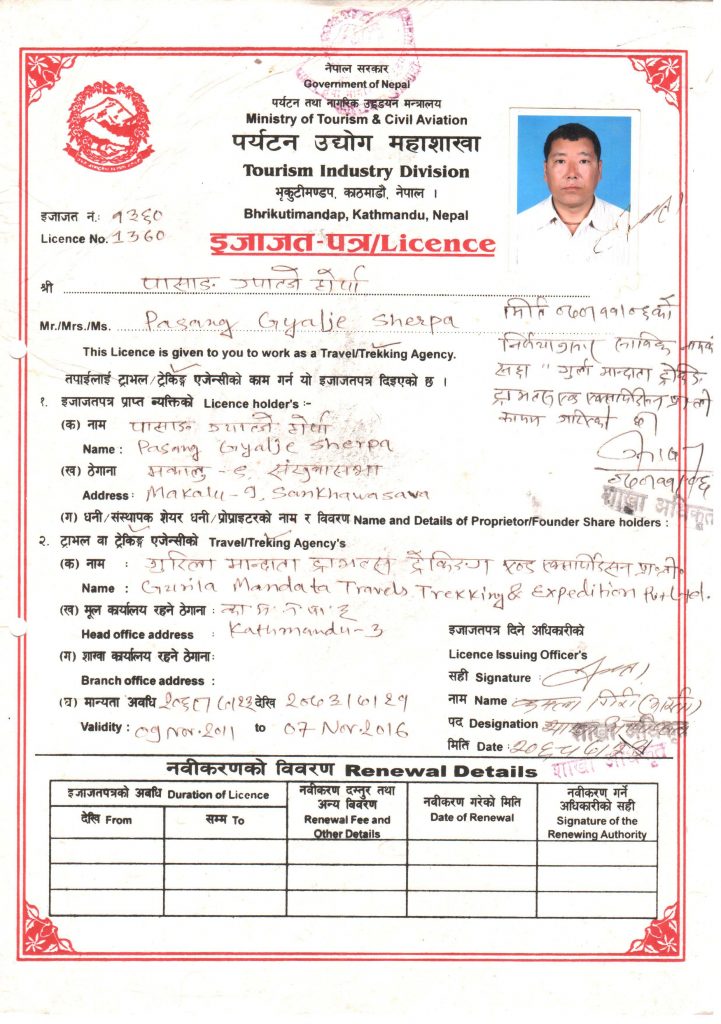 नेपाल सरकार
Government of Nepal
पर्यटन तथा नागरिक उड्डयन मन्त्रालय
Ministry of Tourism & Civil Aviation
पर्यटन उद्योग महाशाखा
Tourism Industry Division
भृकुटीमण्डप, काठमाडौं, नेपाल ।
Bhrikutimandap, Kathmandu, Nepal
इजाजत नं.: १३६०
Licence No. 1360
इजाजत-पत्र/Licence
श्री पासाङ ग्याल्जे शेर्पा
Mr./Mrs./Ms. Pasang Gyalje Sherpa
This Licence is given to you to work as a Travel/Trekking Agency.
तपाईलाई ट्राभल/ट्रेकिङ्ग एजेन्सीको काम गर्न यो इजाजतपत्र दिइएको छ ।
मिति
१. इजाजतपत्र प्राप्त ब्यक्तिको Licence holder's :-
(क) नाम पासाङ ग्याल्जे शेर्पा
Name : Pasang Gyalje Sherpa
(ख) ठेगाना मकालु - ९, संखुवासभा
Address : Makalu-9, Sankhawasava
शाखा अधिकृत
(ग) धनी/संस्थापक शेयर धनी/प्रोप्राइटरको नाम र विवरण Name and Details of Proprietor/Founder Share holders :
२. ट्राभल वा ट्रेकिङ्ग एजेन्सीको Travel/Treking Agency's
(क) नाम : गुरिला मान्दाता ट्राभल्स ट्रेकिङग एण्ड एक्सपिडिसन प्रा.लि.
Name : Gurila Mandata Travels Trekking & Expedition Pvt Ltd.
(ख) मूल कार्यालय रहने ठेगाना :
Head office address : Kathmandu-3
(ग) शाखा कार्यालय रहने ठेगाना:
Branch office address :
(घ) मान्यता अवधि देखि
Validity : 09 Nov. 2011 to 07 Nov. 2016
इजाजतपत्र दिने अधिकारीको
Licence Issuing Officer's
सही Signature :
नाम Name
पद Designation शाखा अधिकृत
मिति Date :
शाखा अधिकृत
नवीकरणको विवरण Renewal Details
इजाजतपत्रको अवधि Duration of Licence
देखि From
सम्म To
नवीकरण दस्तुर तथा
अन्य विवरण
Renewal Fee and
Other Details
नवीकरण गरेको मिति
Date of Renewal
नवीकरण गर्ने
अधिकारीको सही
Signature of the
Renewing Authority